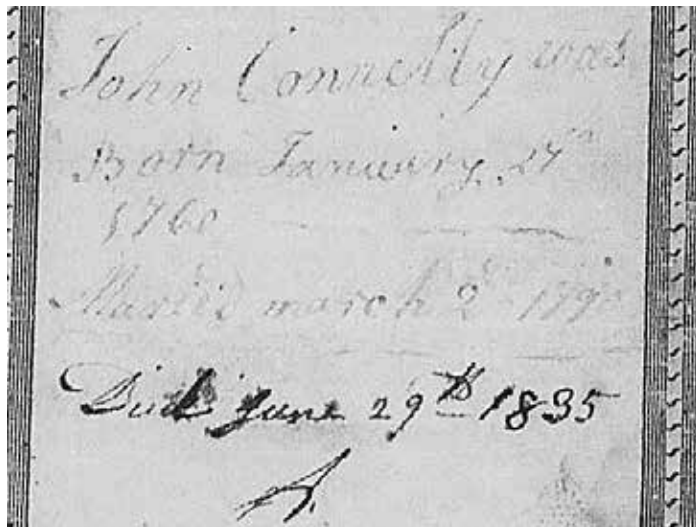 John Connelly was
Born January 27th
1760
Married march 2d
Died June 29th 1835